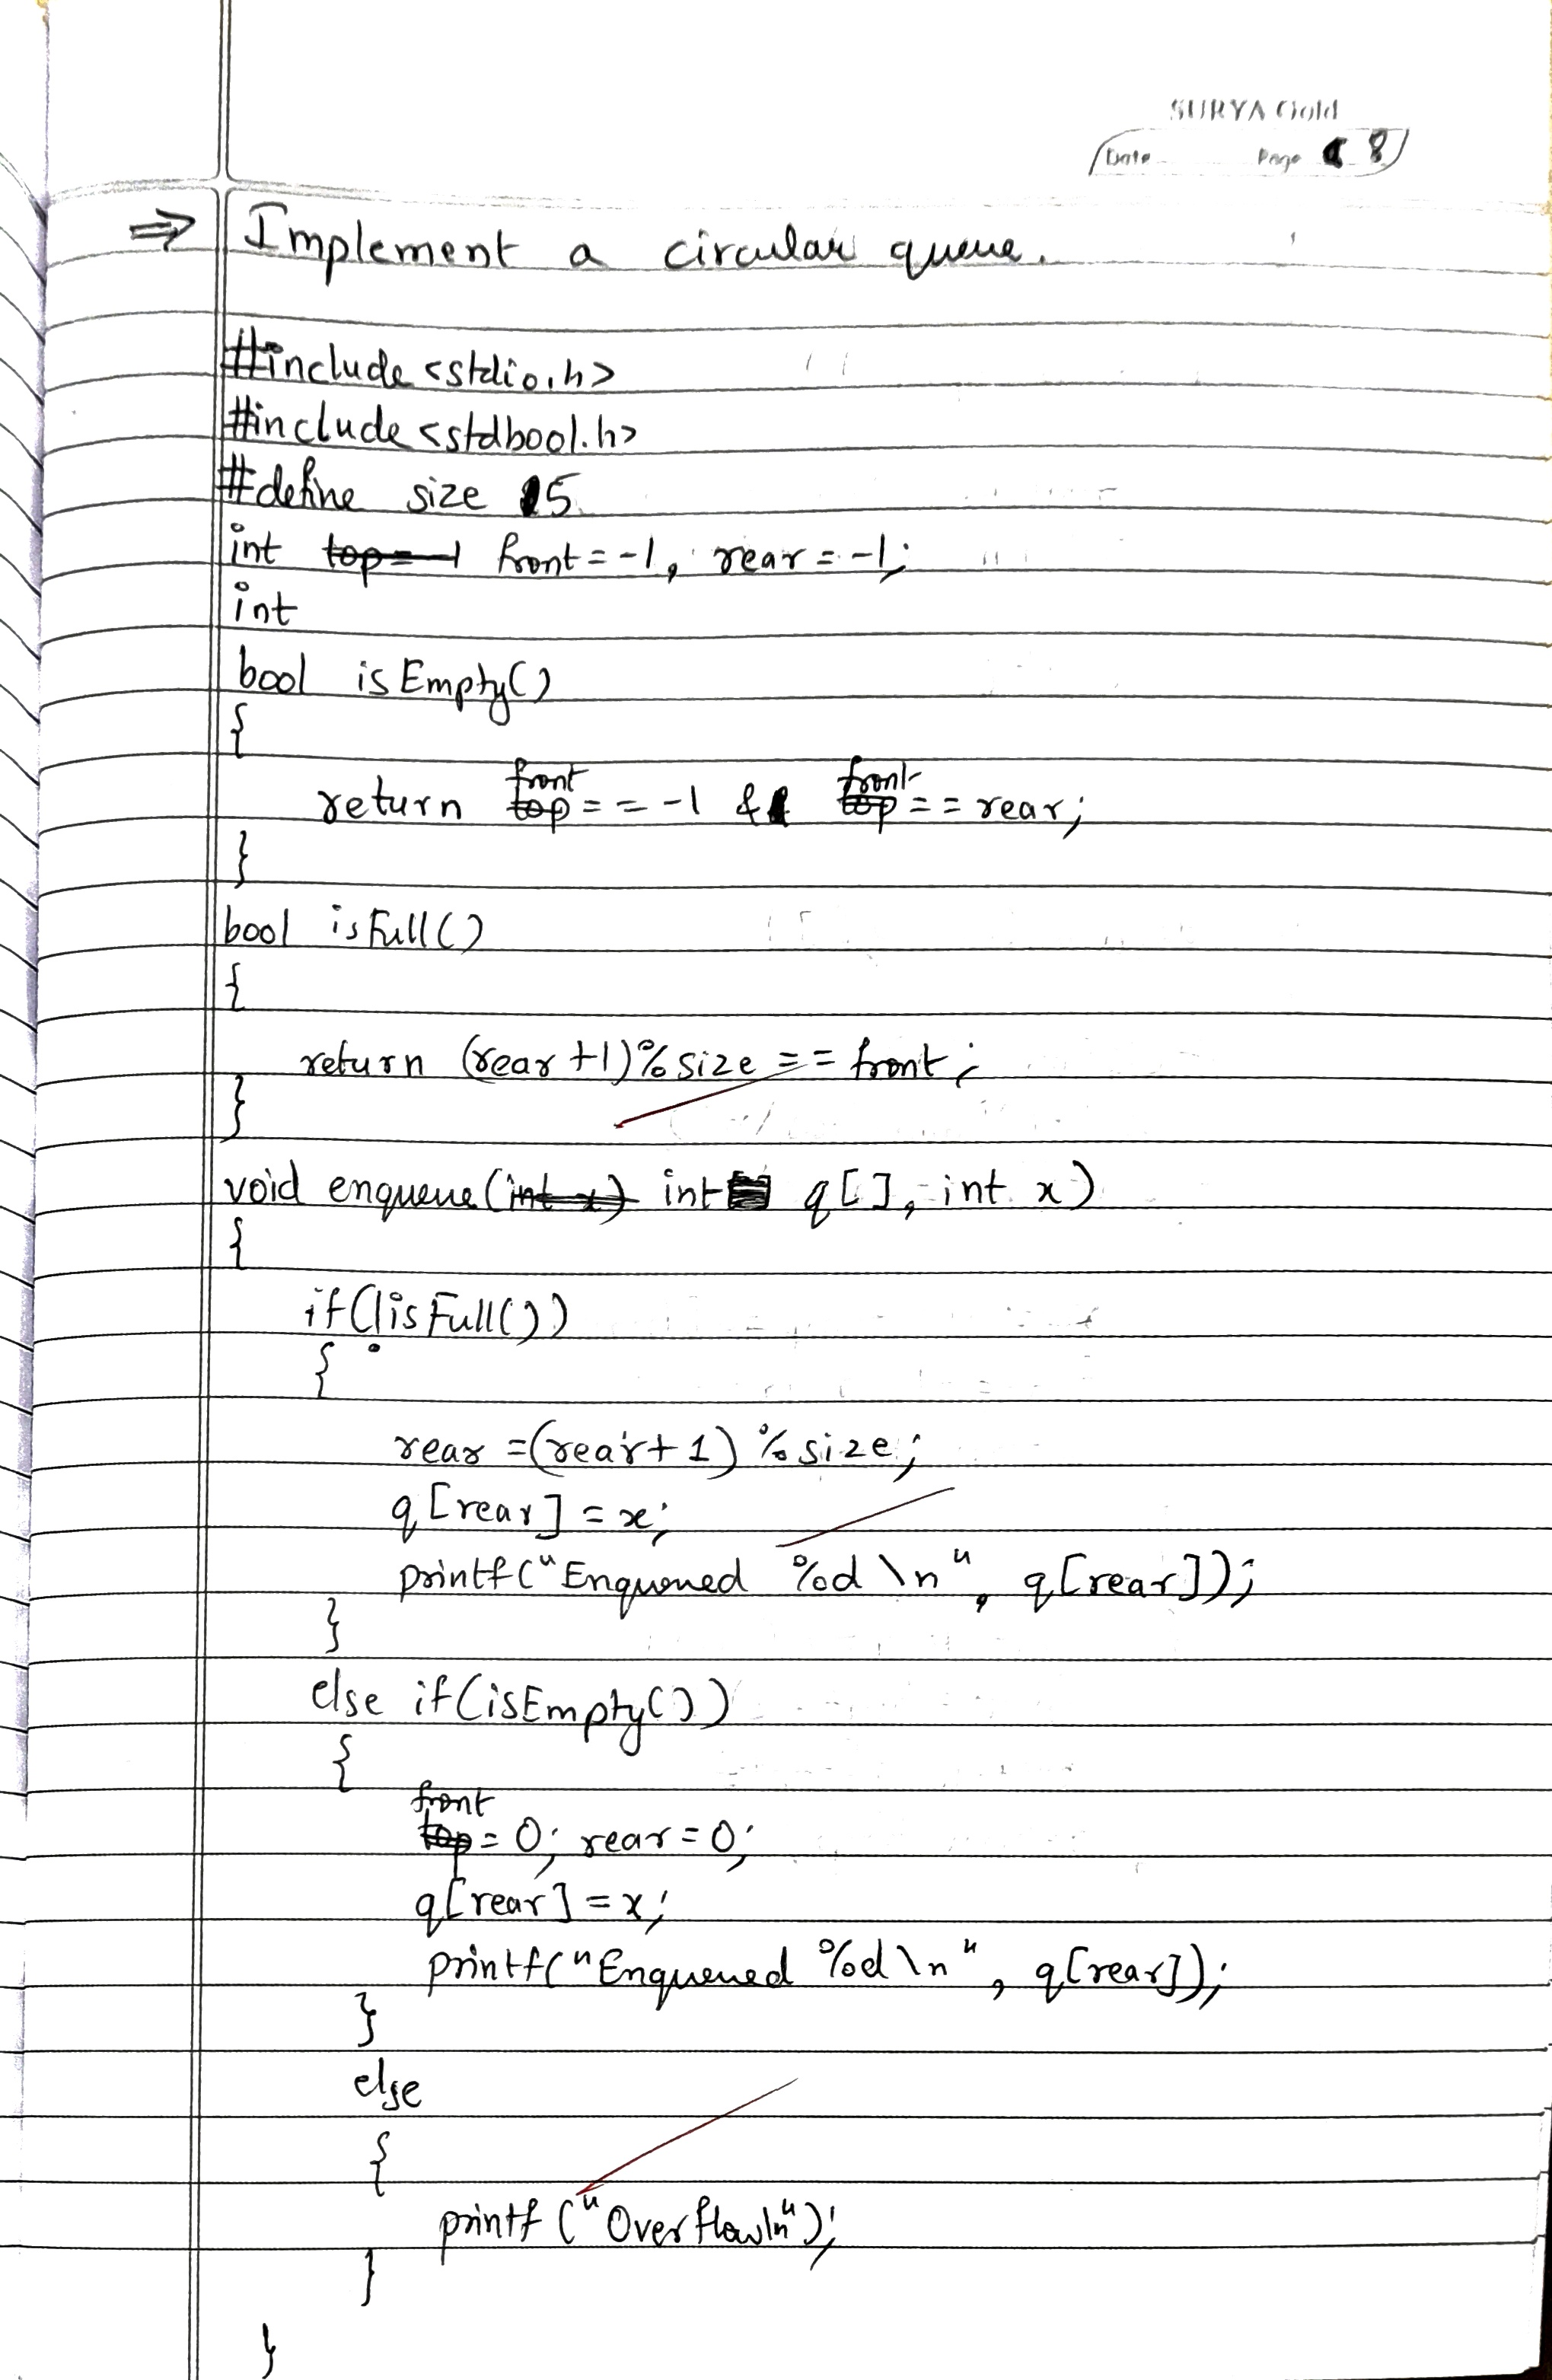 SURYA Gold
Date Page 8
⇒ Implement a circular queue.
#include <stdio.h>
#include <stdbool.h>
#define size 5
int top=-1 front=-1, rear=-1;
int
bool isEmpty()
{
front front
return top==-1 & top==rear;
}
bool isFull()
{
return (rear+1)%size==front;
}
void enqueue(int x) int q[], int x)
{
if(!isFull())
{
rear=(rear+1)%size;
q[rear]=x;
printf("Enqueued %d\n", q[rear]);
}
else if(isEmpty())
{
front
top=0; rear=0;
q[rear]=x;
printf("Enqueued %d\n", q[rear]);
}
else
{
printf("Overflow\n");
}
}